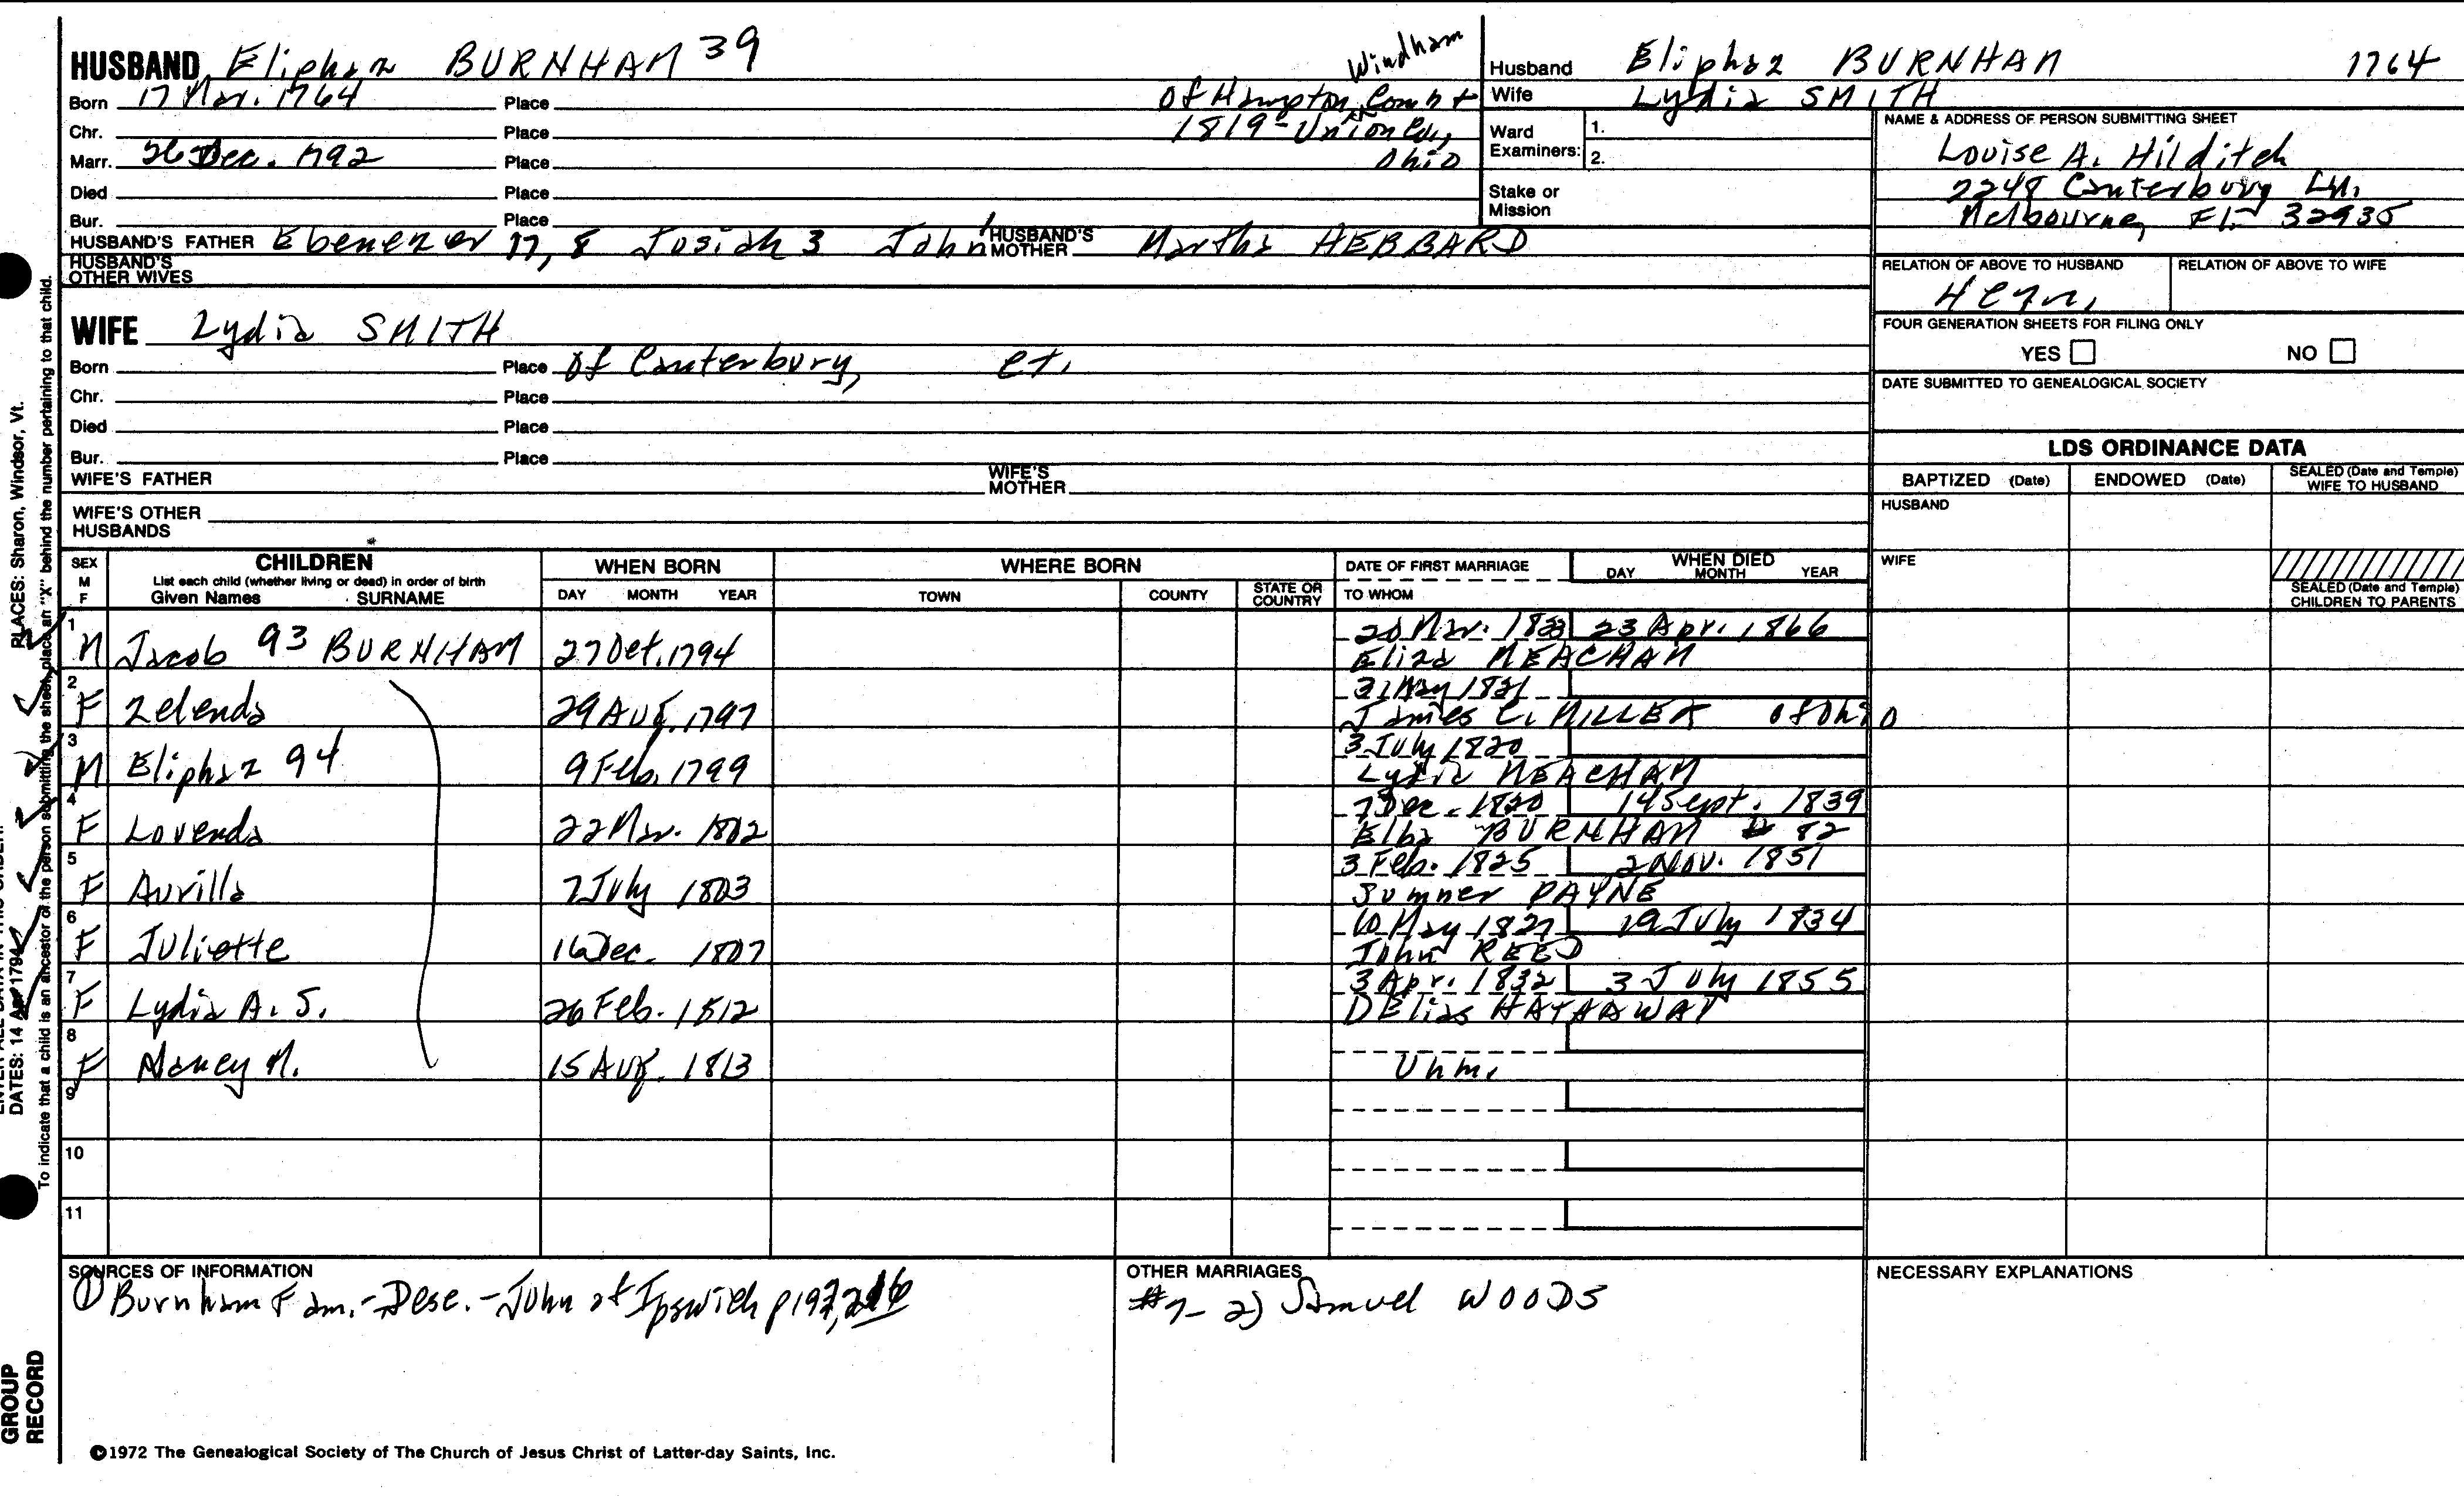 HUSBAND Eliphaz BURNHAM 39
Born 17 Mar. 1764 Place Of Hampton, Windham Co, Conn +
Chr. Place 1819 - Union Co., Ohio
Marr. 26 Dec. 1792 Place
Died Place
Bur. Place
HUSBAND'S FATHER Ebenezer 17, 8 Josiah 3 John 1 HUSBAND'S MOTHER Martha HEBBARD
HUSBAND'S OTHER WIVES
WIFE Lydia SMITH
Born Place Of Canterbury, Ct.
Chr. Place
Died Place
Bur. Place
WIFE'S FATHER WIFE'S MOTHER
WIFE'S OTHER HUSBANDS
Husband Eliphaz BURNHAM 1764
Wife Lydia SMITH
Ward Examiners: 1.
2.
Stake or Mission
NAME & ADDRESS OF PERSON SUBMITTING SHEET
Louise A. Hilditch
2248 Canterbury Ln.
Melbourne, Fl. 32935
RELATION OF ABOVE TO HUSBAND RELATION OF ABOVE TO WIFE
FOUR GENERATION SHEETS FOR FILING ONLY
YES NO
DATE SUBMITTED TO GENEALOGICAL SOCIETY
LDS ORDINANCE DATA
BAPTIZED (Date) ENDOWED (Date) SEALED (Date and Temple) WIFE TO HUSBAND
HUSBAND
WIFE
SEALED (Date and Temple) CHILDREN TO PARENTS
SEX M F CHILDREN WHEN BORN WHERE BORN DATE OF FIRST MARRIAGE WHEN DIED
List each child (whether living or dead) in order of birth
Given Names SURNAME DAY MONTH YEAR TOWN COUNTY STATE OR COUNTRY TO WHOM DAY MONTH YEAR
1 M Jacob 93 BURNHAM 27 Oct. 1794 20 Mar. 23 Apr. 1866
Eliza MEACHAM
2 F Zelenda 29 Aug. 1797 31 May 1821
James C. MILLER of Ohio
3 M Eliphaz 94 9 Feb. 1799 3 July 1820
Lydia MEACHAM
4 F Lovenda 22 Mar. 1802 7 Dec. 1820 14 Sept. 1839
Elba BURNHAM 82
5 F Aurilla 7 July 1803 3 Feb. 1825 2 Nov. 1851
Sumner PAYNE
6 F Juliette 16 Dec. 1807 10 May 1827 19 July 1834
John REED
7 F Lydia A. S. 26 Feb. 1812 3 Apr. 1832 3 July 1855
DElias HATHAWAY
8 F Nancy M. 15 Aug. 1813
Unm.
9
10
11
SOURCES OF INFORMATION
① Burnham Fam. - Desc. - John of Ipswich p 197,
OTHER MARRIAGES
#7 - 2) Samuel WOODS
NECESSARY EXPLANATIONS
©1972 The Genealogical Society of The Church of Jesus Christ of Latter-day Saints, Inc.
PLACES: Sharon, Windsor, Vt.
DATES: 14 Apr 1794
To indicate that a child is an ancestor of the person submitting the sheet, place an "X" behind the number pertaining to that child.
GROUP RECORD